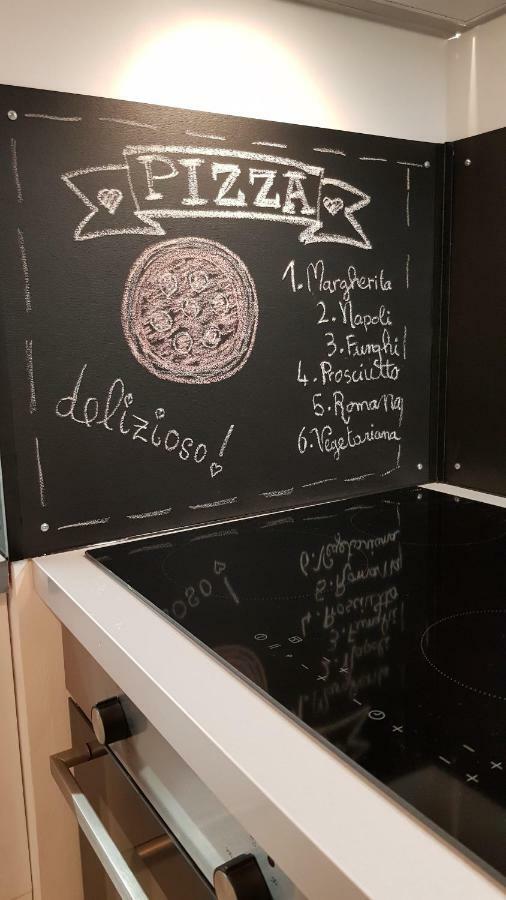 PIZZA
1. Margherita
2. Napoli
3. Funghi
4. Prosciutto
5. Romana
6. Vegetariana
delizioso!